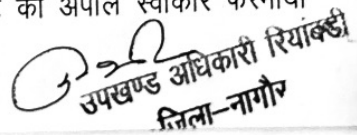 का अपील स्वीकार फरमाया
उपखण्ड अधिकारी रियांबड़ी
जिला-नागौर